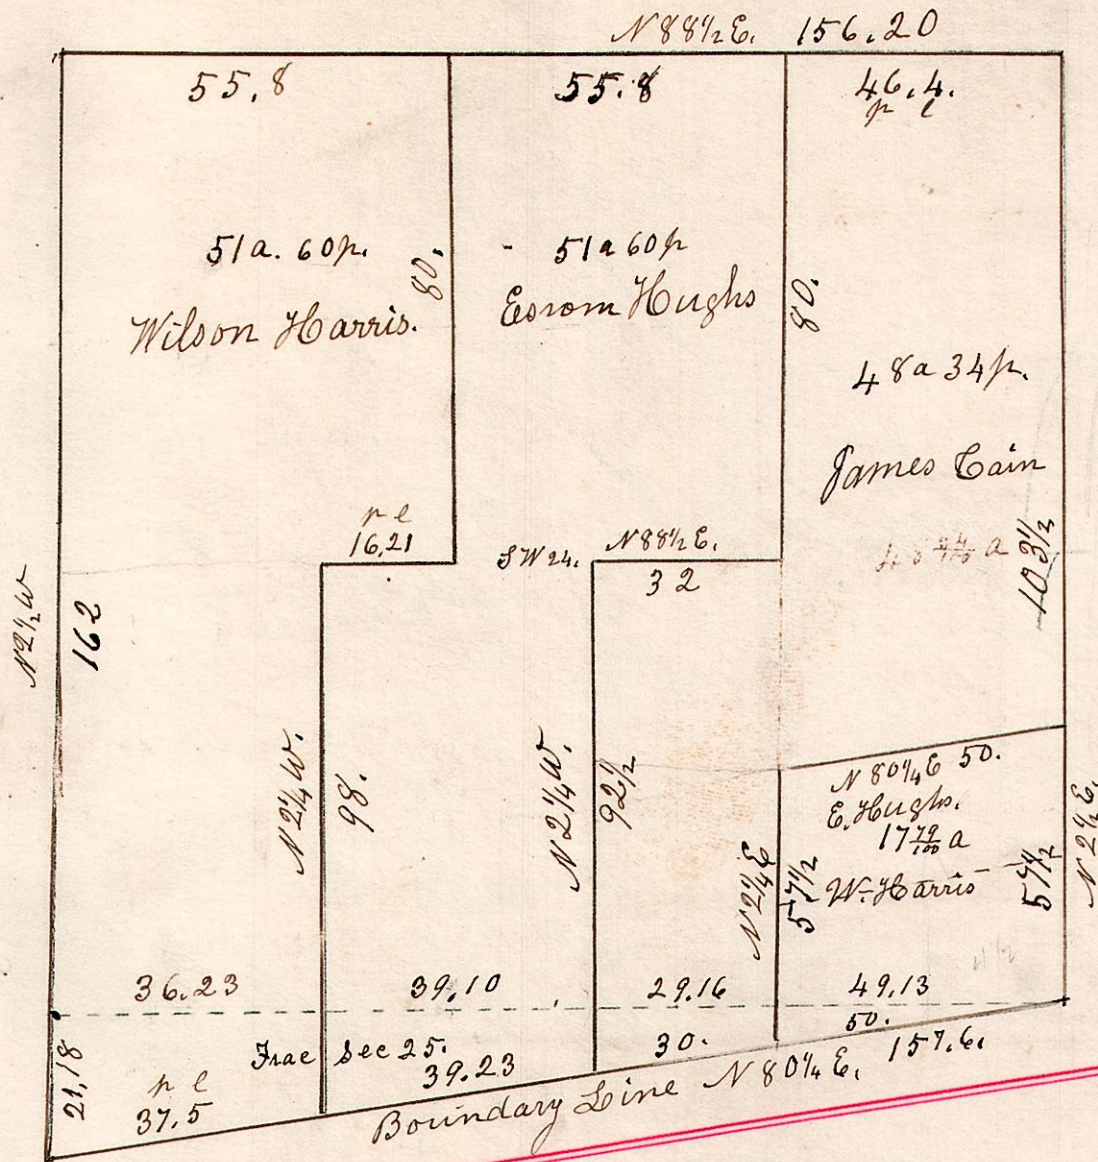 N 88½ E. 156.20
55.8
55.8
46.4.
p l
51a. 60p.
Wilson Harris.
80.
51a 60p
Esrom Hughs
80.
48a 34p.
James Cain
103½
p l
16.21
SW 24.
N 88½ E.
32
N 2½ W
162
N 2¼ W.
98.
N 2¼ W.
92½
N 80¼ E 50.
E. Hughs.
17 79/100 a
W. Harris
N 2¼ E
57½
57½
N 2½ E.
36.23
39.10
29.16
49.13
50.
21.18
Frac Sec 25.
39.23
30.
157.6.
p l
37.5
Boundary Line N 80¼ E.